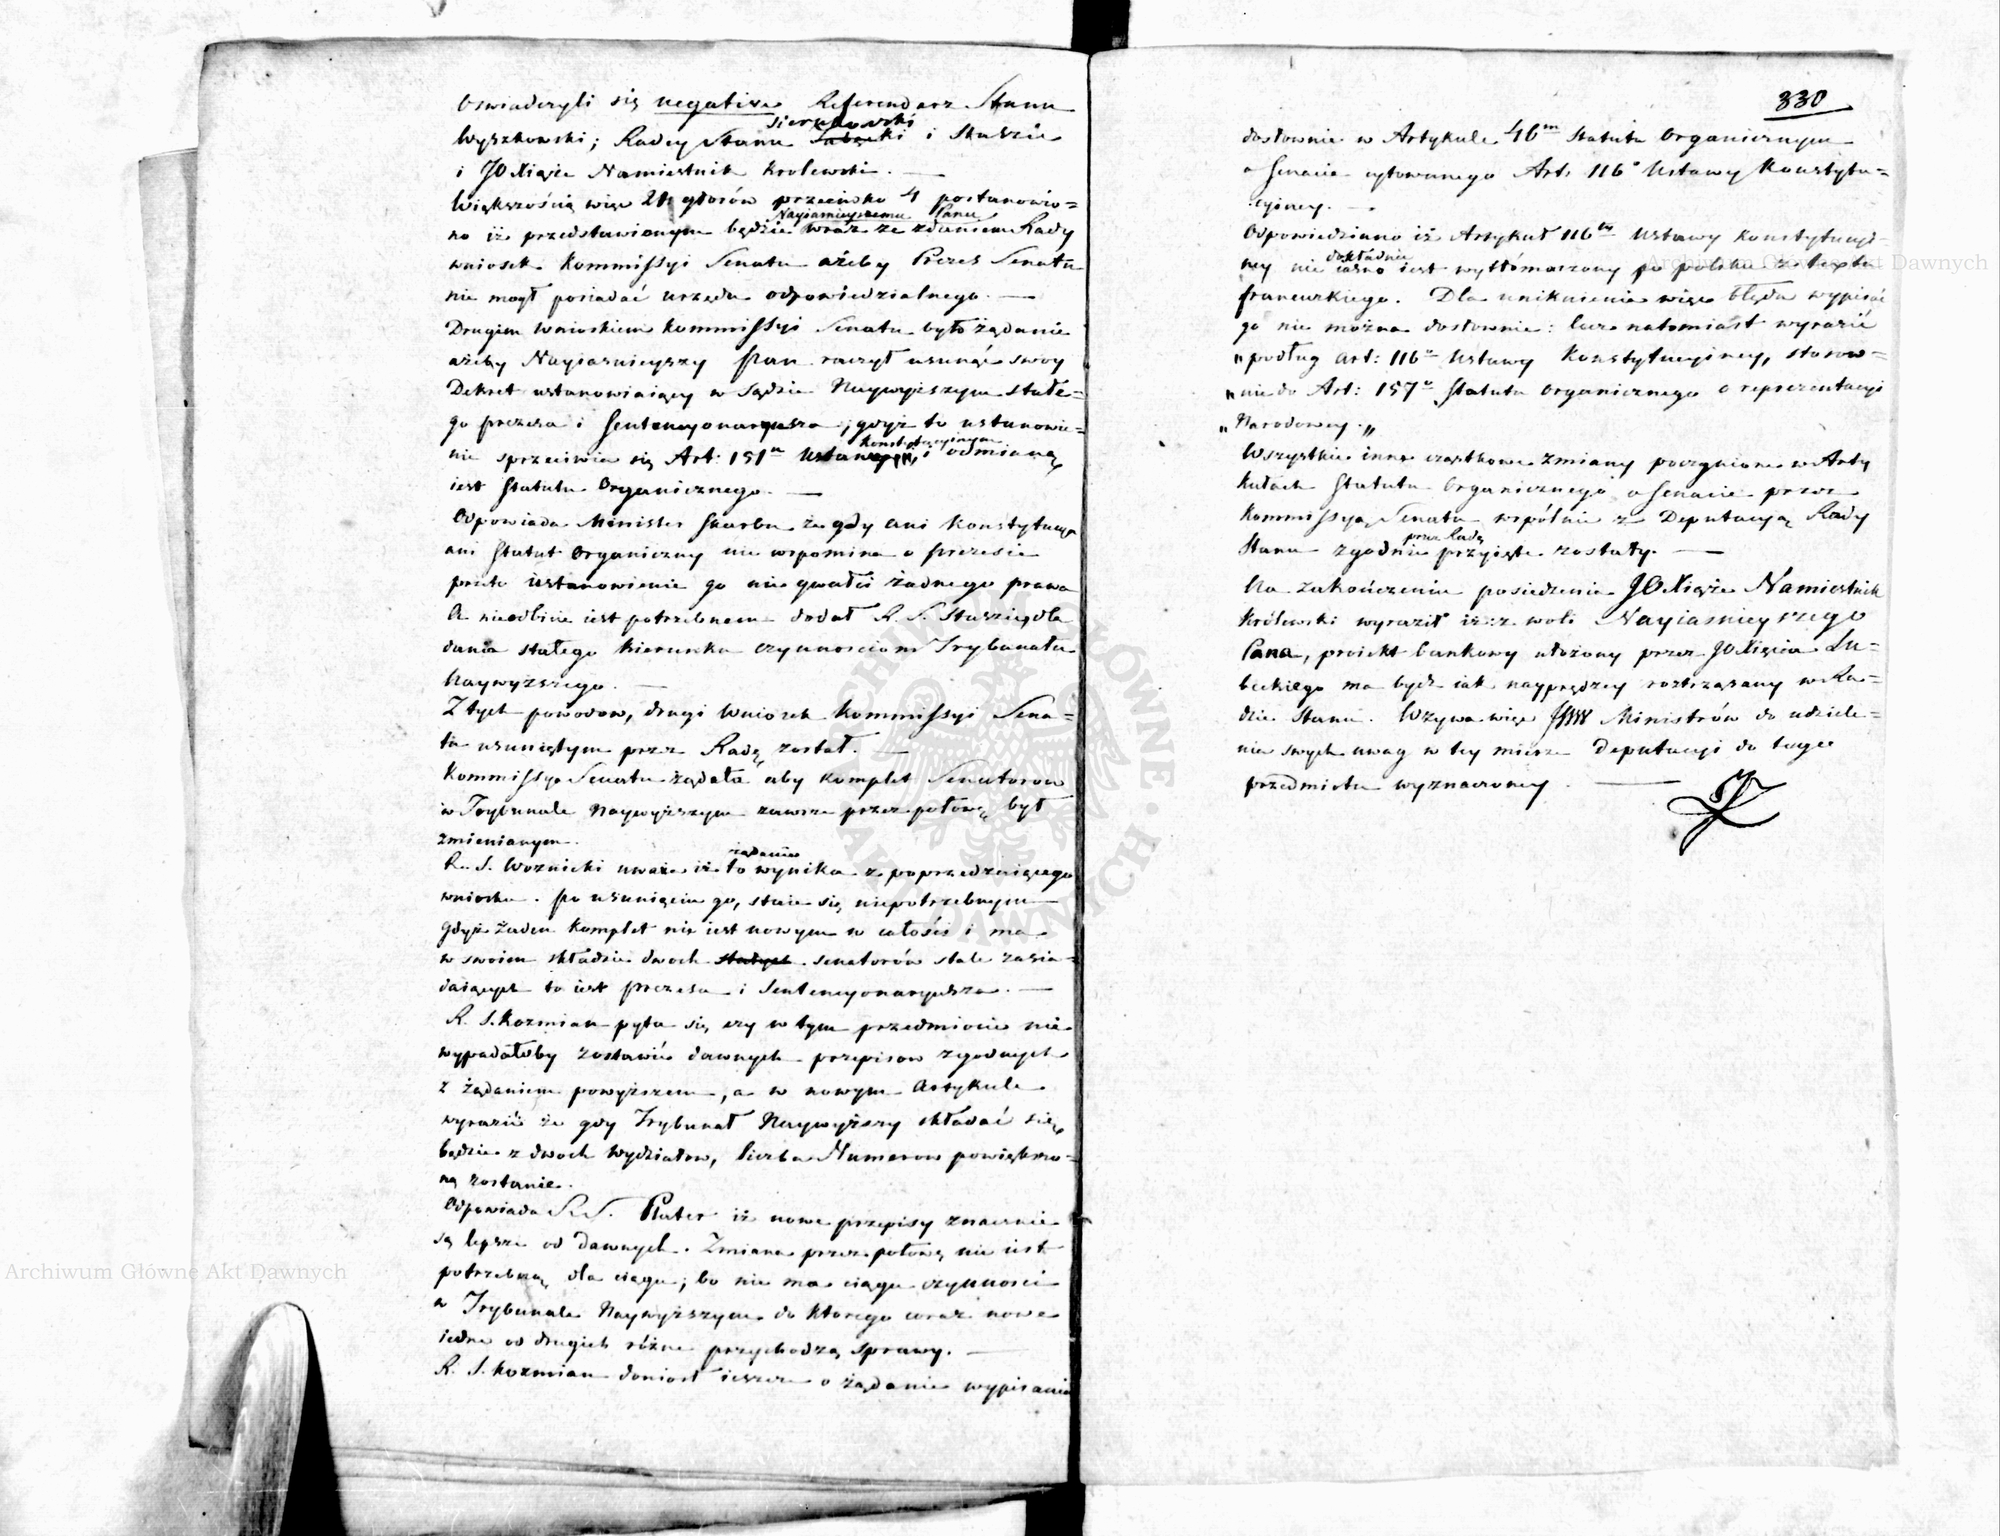 Oswiadczyli się negative Referendarz Stanu
Wyszkowski; Radcy Stanu Sierakowski i Staszic
i JO Xiąże Namiestnik Krolewski. —
Większością więc 21 głosów przeciwko 4 postanowio=
no iż przedstawionym będzie Nayiaśnieyszemu Panu wraz ze zdaniem Rady
wniosek Kommissyi Senatu ażeby Prezes Senatu
nie mogł posiadać urzędu odpowiedzialnego. —
Drugim wnioskiem Kommissyi Senatu było żądanie
ażeby Nayiasnieyszy Pan raczył usunąć swoy
Dekret ustanowiaiący w Sądzie Naywyższym stałe=
go prezesa i Sentencyonaryusza, gdyż to ustanowie=
nie sprzeciwia się Art: 151 Ustawy Konstytucyinem i odmianą
iest Statutu Organicznego. —
Odpowiada Minister Skarbu że gdy ani Konstytucya
ani Statut Organiczny nie wspomina o prezesie
przeto ustanowienie go nie gwałci żadnego prawa
A nieodbicie iest potrzebnem dodał R. S. Staszic dla
dania stałego kierunku czynnosciom Trybunału
Naywyższego. —
Z tych powodow, drugi wniosek Kommissyi Sena=
tu usuniętym przez Radę został. —
Kommissya Senatu żądała aby komplet Senatorow
w Trybunale Naywyższym zawsze przez połowę był
zmienianym.
R. S. Woznicki uważa iż to żądanie wynika z poprzedzaiącego
wniosku. po usunięciu go, staie się niepotrzebnym
gdyż żaden komplet nie iest nowym w całości i ma
w swoim składzie dwoch stałych senatorów stale zasia=
daiących to iest prezesa i Sentencyonaryusza. —
R. S. Kozmian pyta się czy w tym przedmiocie nie
wypadałoby zostawić dawnych przepisow zgodnych
z żądaniem powyższem, a w nowym Artykule
wyrazić że gdy Trybunał Naywyższy składać się
będzie z dwoch wydziałow, liczba Numerow powiększo=
ną zostanie.
Odpowiada S. S. Plater iż nowe przepisy znacznie
są lepsze od dawnych. Zmiana przez połowę nie iest
potrzebną dla ciągu; bo nie ma ciągu czynnosci
w Trybunale Naywyższym do ktorego coraz nowe
iedne od drugich różne przychodzą sprawy. —
R. S. Kozmian doniosł ieszcze o żądanie wypisania
330
dosłownie w Artykule 46m Statutu Organicznym
o Senacie cytowanego Art: 116° Ustawy Konstytu=
cyiney. —
Odpowiedziano iż Artykuł 116ty Ustawy Konstytucyi=
ney nie dokładnie iasno iest wytłómaczony po polsku z textu
francuskiego. Dla uniknienia więc błędu wypisać
go nie można dosłownie: lecz natomiast wyrazić
„podług art: 116° Ustawy Konstytucyiney, stosow=
„nie do Art: 157° Statutu Organicznego o reprezentacyi
„Narodowey.„
Wszystkie inne cząstkowe zmiany poczynione w Arty
kułach Statutu Organicznego o Senacie przez
Kommissyą Senatu wspólnie z Deputacyą Rady
Stanu zgodnie przez Radę przyięte zostały. —
Na zakończeniu posiedzenia JO Xiąże Namiestnik
Królewski wyraził iż z woli Nayiasnieyszego
Pana, proiekt bankowy ułożony przez JO Xięcia Lu=
beckiego ma bydz iak nayprędzey roztrząsany w Ra=
dzie Stanu. Wzywa więc Ministrów do udziele=
nia swych uwag w tey mierze Deputacyi do tego
przedmiotu wyznaczoney. —
Archiwum Główne Akt Dawnych
Archiwum Główne Akt Dawnych
ARCHIWUM GŁÓWNE AKT DAWNYCH